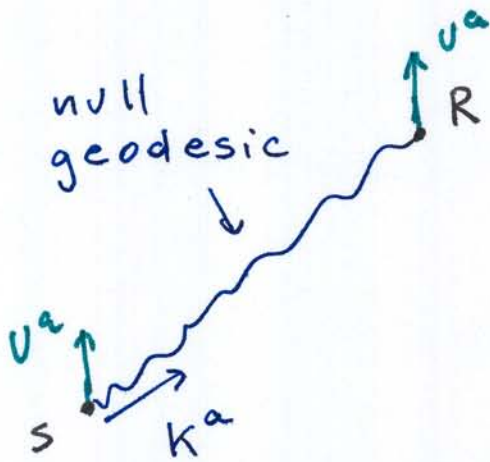 null
geodesic
υᵃ
R
υᵃ
S
Kᵃ